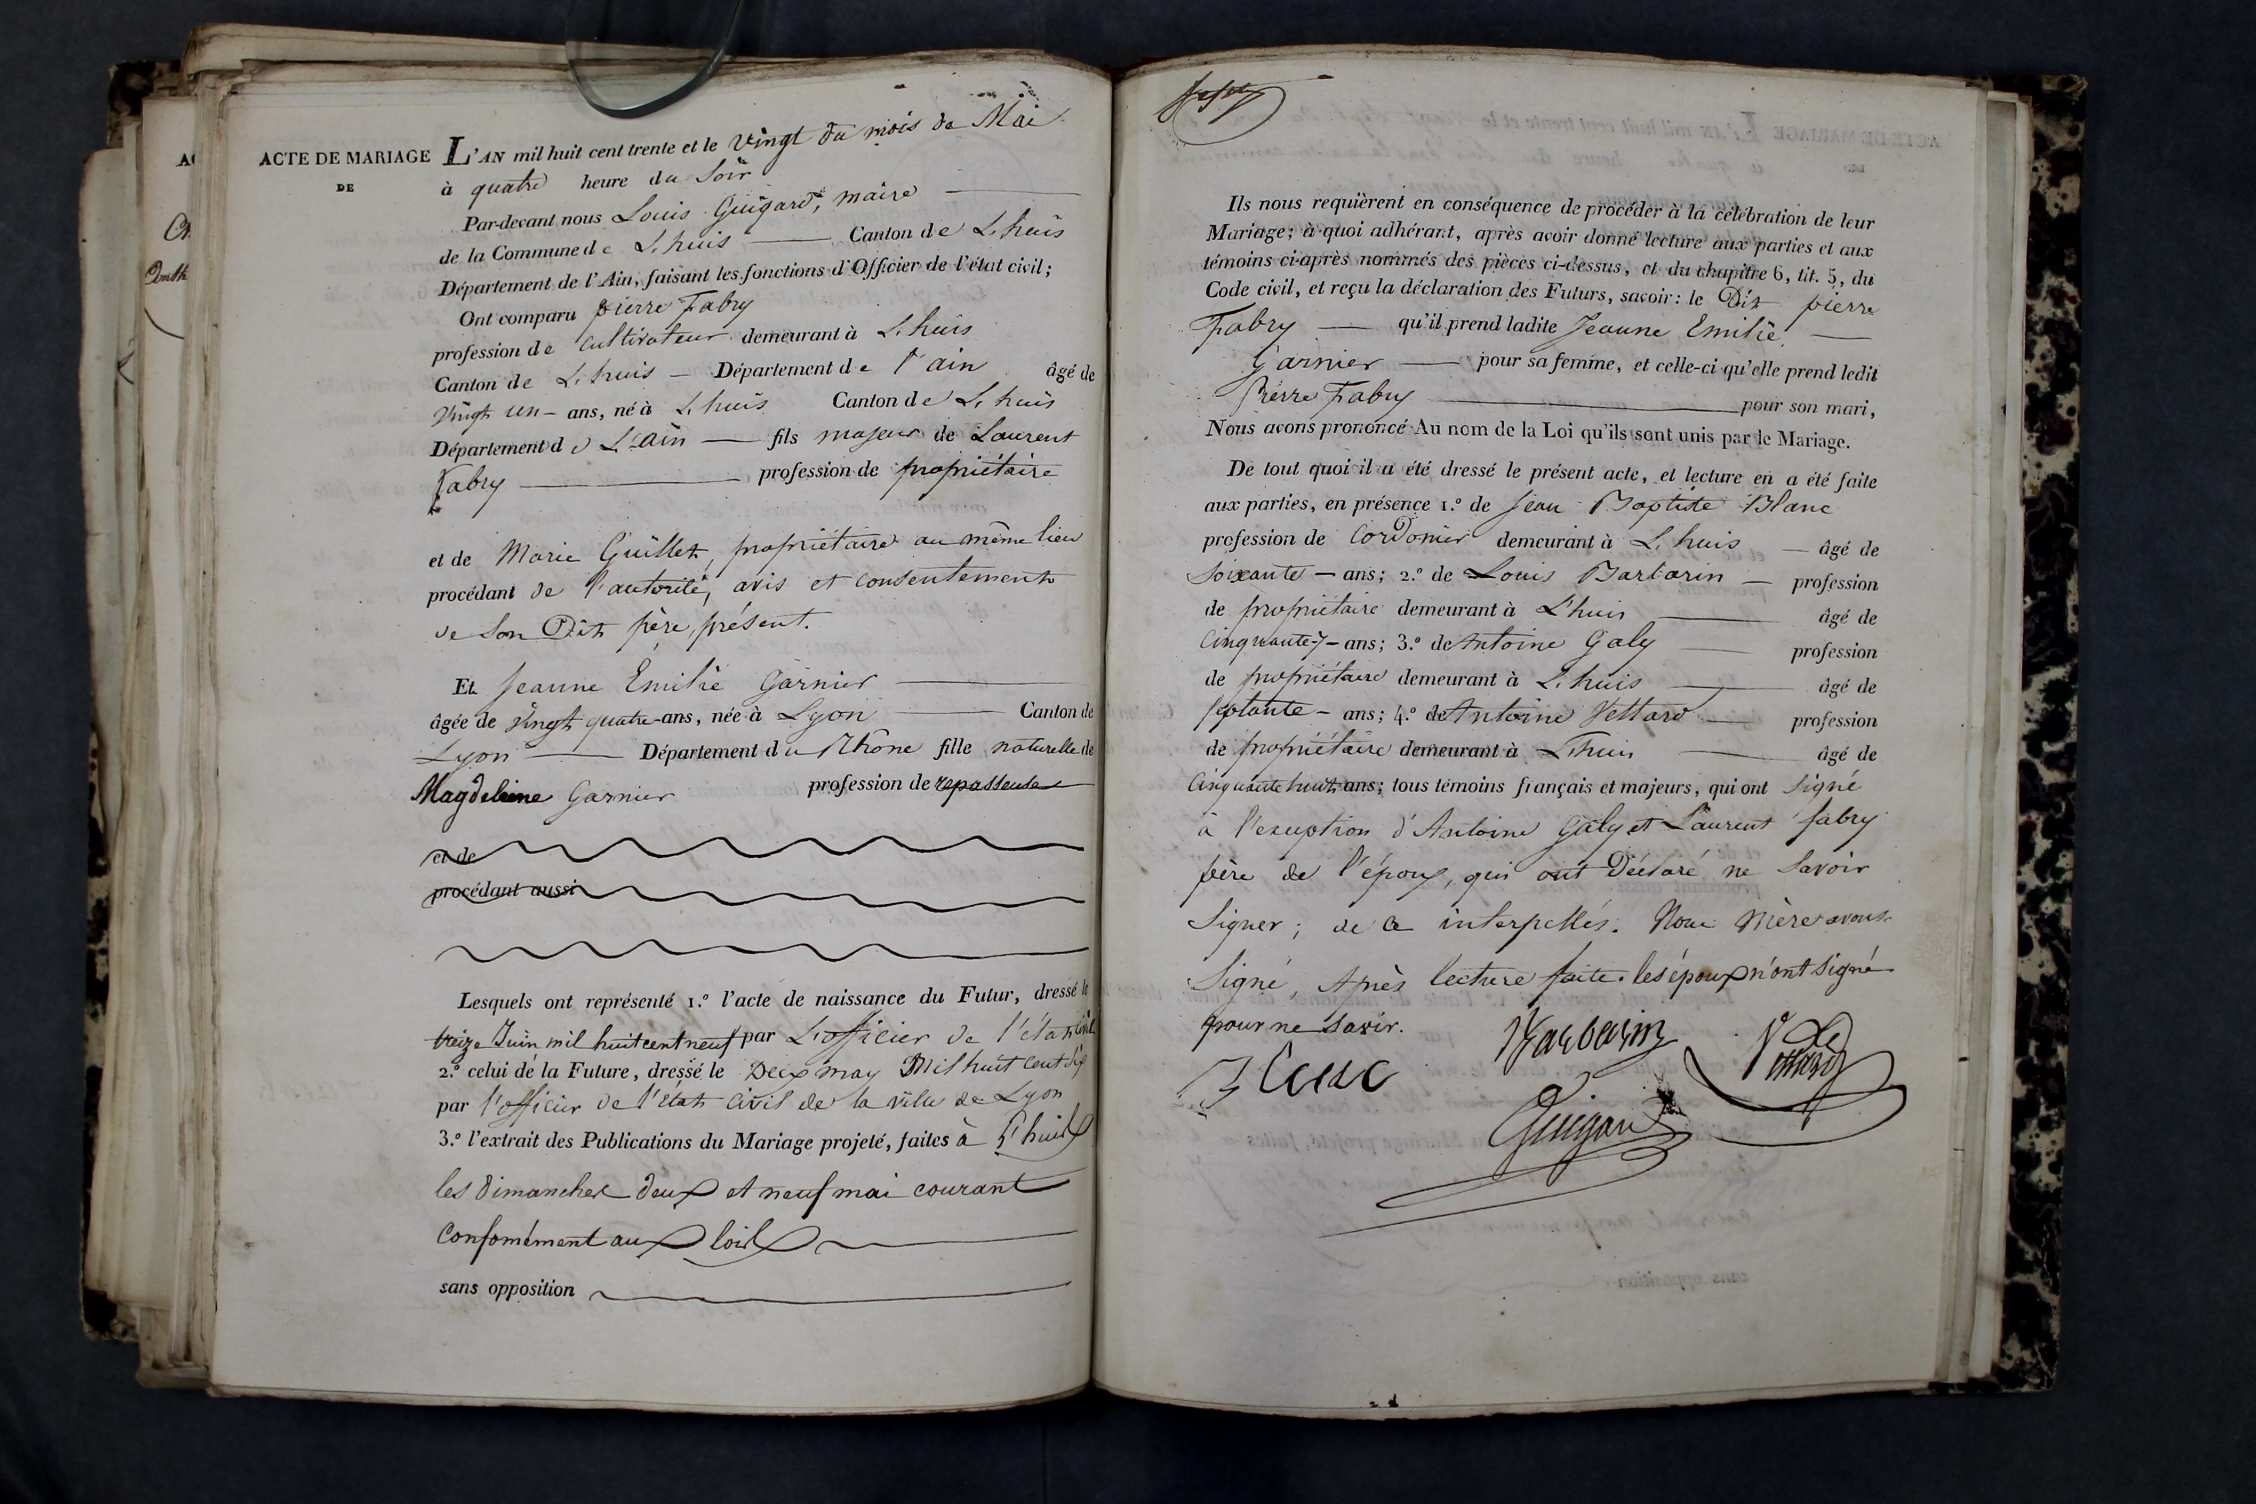 ACTE DE MARIAGE L'AN mil huit cent trente et le vingt du mois de Mai
DE
à quatre heure du Soir
Par-devant nous Louis Guigard, maire
de la Commune de L'huis Canton de L'huis
Département de l'Ain, faisant les fonctions d'Officier de l'état civil;
Ont comparu pierre Fabry
profession de cultivateur demeurant à L'huis
Canton de L'huis Département de l'ain âgé de
vingt un ans, né à L'huis Canton de L'huis
Département de L'ain fils majeur de Laurent
Fabry profession de propriétaire
et de Marie Guillet, propriétaire au même lieu
procédant de l'autorité, avis et consentement
de son Dit père, présent.
Et Jeanne Emilie Garnier
âgée de vingt quatre ans, née à Lyon Canton de
Lyon Département du Rhône fille naturelle de
Magdeleine Garnier profession de repasseuse
et de
procédant aussi
Lesquels ont représenté 1.º l'acte de naissance du Futur, dressé le
treize Juin mil huit cent neuf par L'officier de l'état civil
2.º celui de la Future, dressé le Deux may Mil huit cent six
par l'officier de l'état civil de la ville de Lyon
3.º l'extrait des Publications du Mariage projeté, faites à L'huis
les dimanches deux et neuf mai courant
confomément aux lois
sans opposition
Ils nous requièrent en conséquence de procéder à la célébration de leur
Mariage; à quoi adhérant, après avoir donné lecture aux parties et aux
témoins ci-après nommés des pièces ci-dessus, et du chapitre 6, tit. 5, du
Code civil, et reçu la déclaration des Futurs, savoir: le Dit pierre
Fabry qu'il prend ladite Jeanne Emilie
Garnier pour sa femme, et celle-ci qu'elle prend ledit
Pierre Fabry pour son mari,
Nous avons prononcé Au nom de la Loi qu'ils sont unis par le Mariage.
De tout quoi il a été dressé le présent acte, et lecture en a été faite
aux parties, en présence 1.º de Jean Baptiste Blanc
profession de Cordonier demeurant à L'huis âgé de
soixante ans; 2.º de Louis Barbarin profession
de propriétaire demeurant à L'huis âgé de
cinquante 7 ans; 3.º de Antoine Galy profession
de propriétaire demeurant à L'huis âgé de
septante ans; 4.º de Antoine Vettard profession
de propriétaire demeurant à L'huis âgé de
cinquante huit ans; tous témoins français et majeurs, qui ont signé
à l'exception d'Antoine Galy et Laurent fabry
père de l'époux, qui ont Déclaré ne savoir
signer; de ce interpellés. Nous Mère avons
signé, Après lecture faite. les époux n'ont signé
pour ne savir.
Barbarin
Vettard
Blanc
Guigard